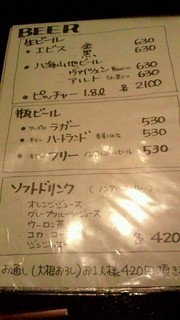 BEER
生ビール
・エビス 金 630
黒 630
・八海山地ビール
ヴァイツェン 630
アルト 630
・ピッチャー 1.8ℓ 各 2100
瓶ビール
ラガー 530
ハートランド 530
フリー ノンアルコールビール 530
ソフトドリンク (ノンアルコール
オレンジジュース
グレープフルーツジュース
ウーロン茶
コカ・コーラ
各 420
お通し (大根おろし) お1人様 420円 頂き